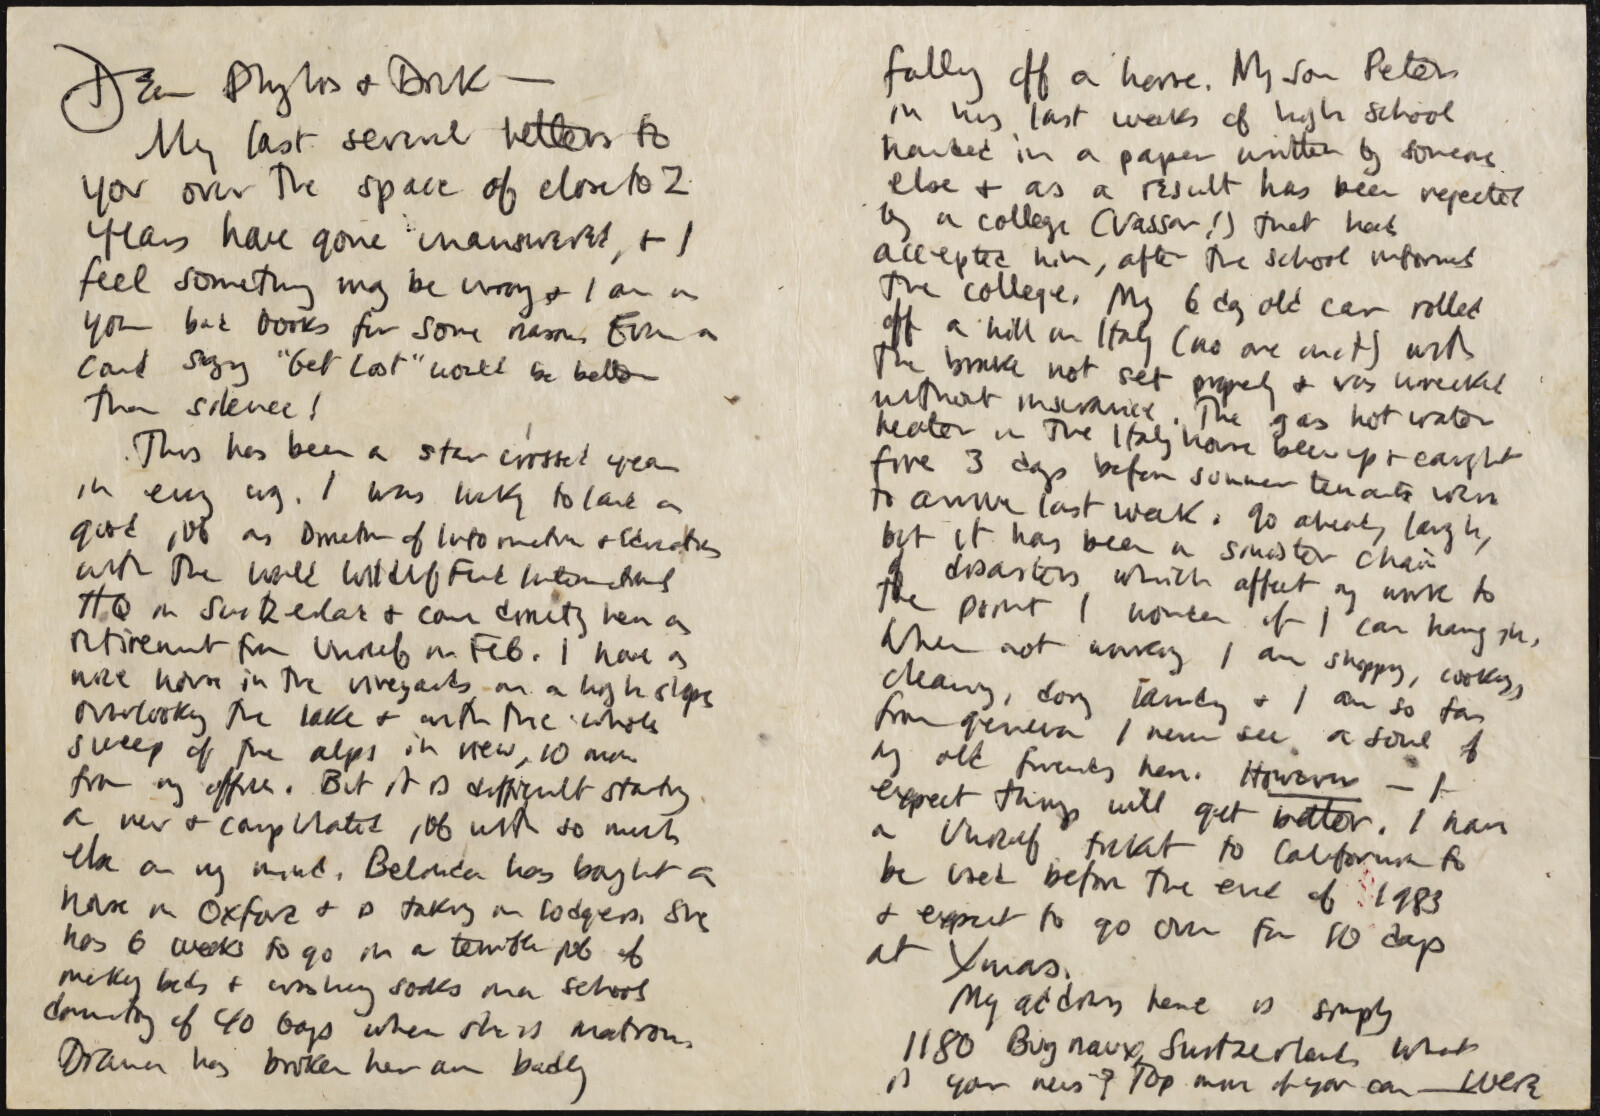 Dear Phyllis & Dick —
My last several letters to
you over the space of close to 2
years have gone unanswered, & I
feel something may be wrong & I am in
your bad books for some reason. Even a
card saying "Get Lost" would be better
than silence!
This has been a star crossed year
in every way. I was lucky to land a
good job as Director of Information & Education
with the World Wildlife Fund International
HQ in Switzerland & came directly here as
retirement from Unicef in Feb. I have a
nice house in the vineyards on a high slope
overlooking the lake & with the whole
sweep of the alps in view, 10 min
from my office. But it is difficult starting
a new & complicated job with so much
else on my mind. Belinda has bought a
house in Oxford & is taking in lodgers. She
has 6 weeks to go in a terrible job of
making beds & washing socks in a school
dormitory of 40 boys where she is matron.
Diana has broken her arm badly
falling off a horse. My son Peter
in his last weeks of high school
handed in a paper written by someone
else & as a result has been rejected
by a college (Vassar!) that had
accepted him, after the school informed
the college. My 6 day old car rolled
off a hill in Italy (no one in it) with
the brake not set properly & was wrecked
without insurance. The gas hot water
heater in the Italy house blew up & caught
fire 3 days before summer tenants were
to arrive last week. Go ahead, laugh,
but it has been a sinister chain
of disasters which affect my work to
the point I wonder if I can hang in.
When not working I am shopping, cooking,
cleaning, doing laundry & I am so far
from Geneva I never see a soul of
my old friends here. However — I
expect things will get better. I have
a Unicef ticket to California to
be used before the end of 1983
& expect to go over for 10 days
at Xmas.
My address here is simply
1180 Bugnaux, Switzerland. What
is your news? Top mine if you can —